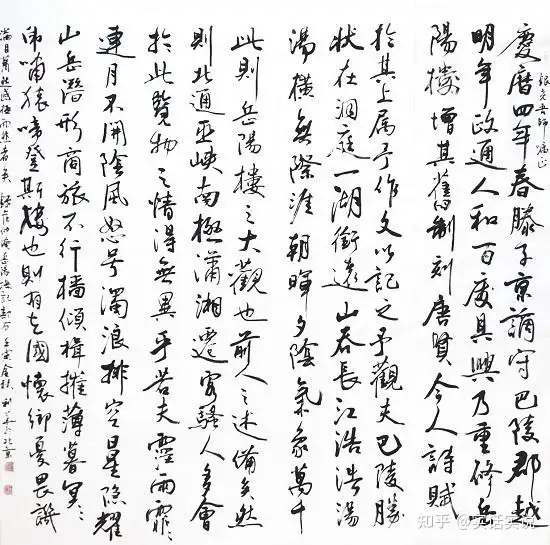 吾師屬正
慶曆四年春滕子京謫守巴陵郡越
明年政通人和百廢具興乃重修岳
陽樓增其舊制刻唐賢今人詩賦
於其上属予作文以記之予觀夫巴陵勝
状在洞庭一湖銜遠山吞長江浩浩湯
湯橫無際涯朝暉夕陰氣象萬千
此則岳陽樓之大觀也前人之述備矣然
則北通巫峽南極瀟湘遷客騷人多會
於此覽物之情得無異乎若夫霪雨霏〻
連月不開陰風怒号濁浪排空星隐耀
山岳潛形商旅不行檣傾楫摧薄暮冥〻
虎嘯猿啼登斯樓也則有去國懷鄉憂畏譏
滿目蕭然感極而悲者矣 錄范仲淹岳陽樓記部分 壬寅金秋 於北京
知乎 @实话实说